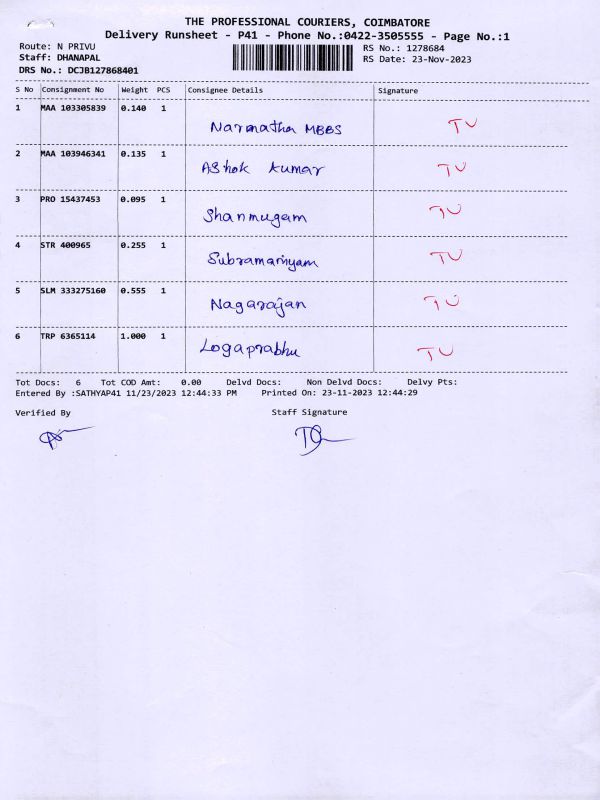 THE PROFESSIONAL COURIERS, COIMBATORE
Delivery Runsheet - P41 - Phone No.:0422-3505555 - Page No.:1
Route: N PRIVU
RS No.: 1278684
Staff: DHANAPAL
RS Date: 23-Nov-2023
DRS No.: DCJB127868401
S No Consignment No Weight PCS Consignee Details Signature
1 MAA 103305839 0.140 1
Narmatha MBBS TU
2 MAA 103946341 0.135 1
Ashok Kumar TU
3 PRO 15437453 0.095 1
Shanmugam TU
4 STR 400965 0.255 1
Subramaniyam TU
5 SLM 333275160 0.555 1
Nagarajan TU
6 TRP 6365114 1.000 1
Logaprabhu TU
Tot Docs: 6 Tot COD Amt: 0.00 Delvd Docs: Non Delvd Docs: Delvy Pts:
Entered By :SATHYAP41 11/23/2023 12:44:33 PM Printed On: 23-11-2023 12:44:29
Verified By Staff Signature